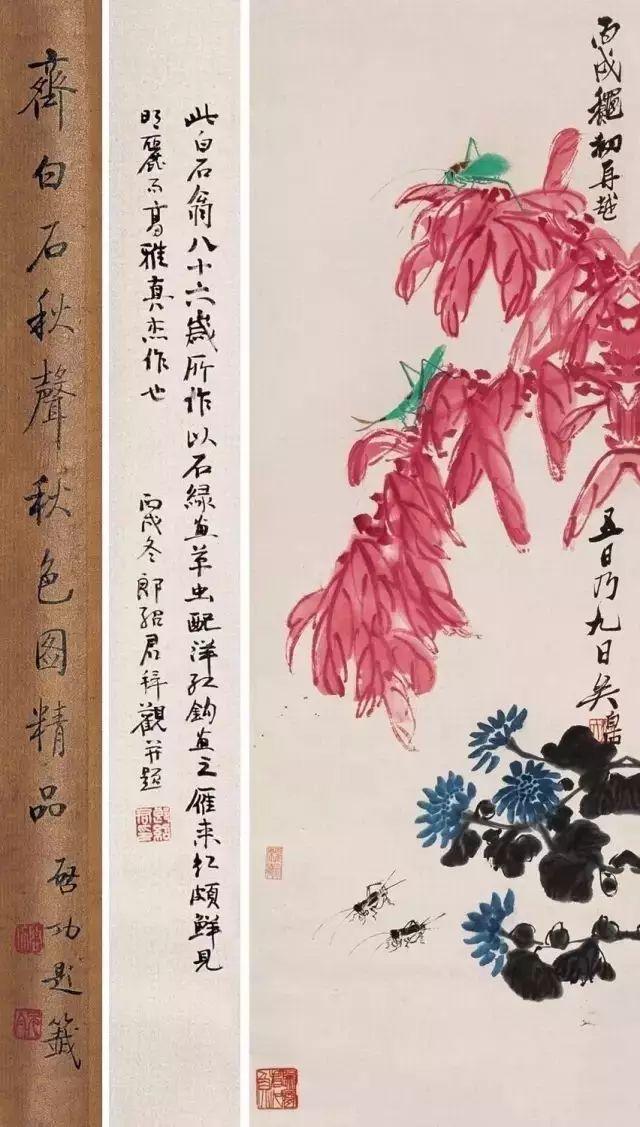 齊白石秋聲秋色圖精品
啓功題籤
此白石翁八十六歲所作以石綠畫草虫配洋紅鈎畫之雁来紅頗鮮見
明麗而高雅真杰作也
丙戌冬郎紹君拜觀并題
丙戌龝初再越
五日乃九日矣